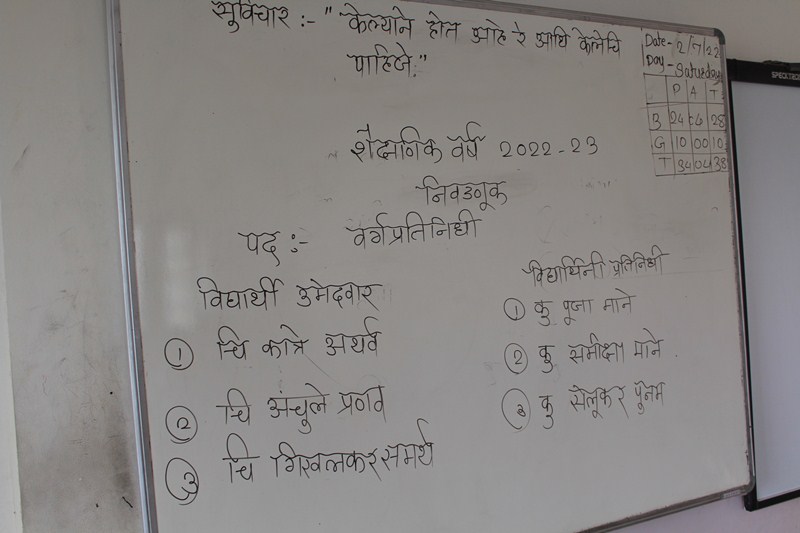 सुविचार :- " केल्याने होत आहे रे आधि केलेचि
पाहिजे."
Date - 2/7/22
Day - Saturday
P A T
B 24 04 28
G 10 00 10
T 34 04 38
शैक्षणिक वर्ष 2022-23
निवडणूक
पद :- वर्गप्रतिनिधी
विद्यार्थी उमेदवार
① चि कात्रे अथर्व
② चि अंचुले प्रणव
③ चि गिखलकर समर्थ
विद्यार्थिनी प्रतिनिधी
① कु पूजा माने
② कु समीक्षा माने.
③ कु सेलूकर पुनम